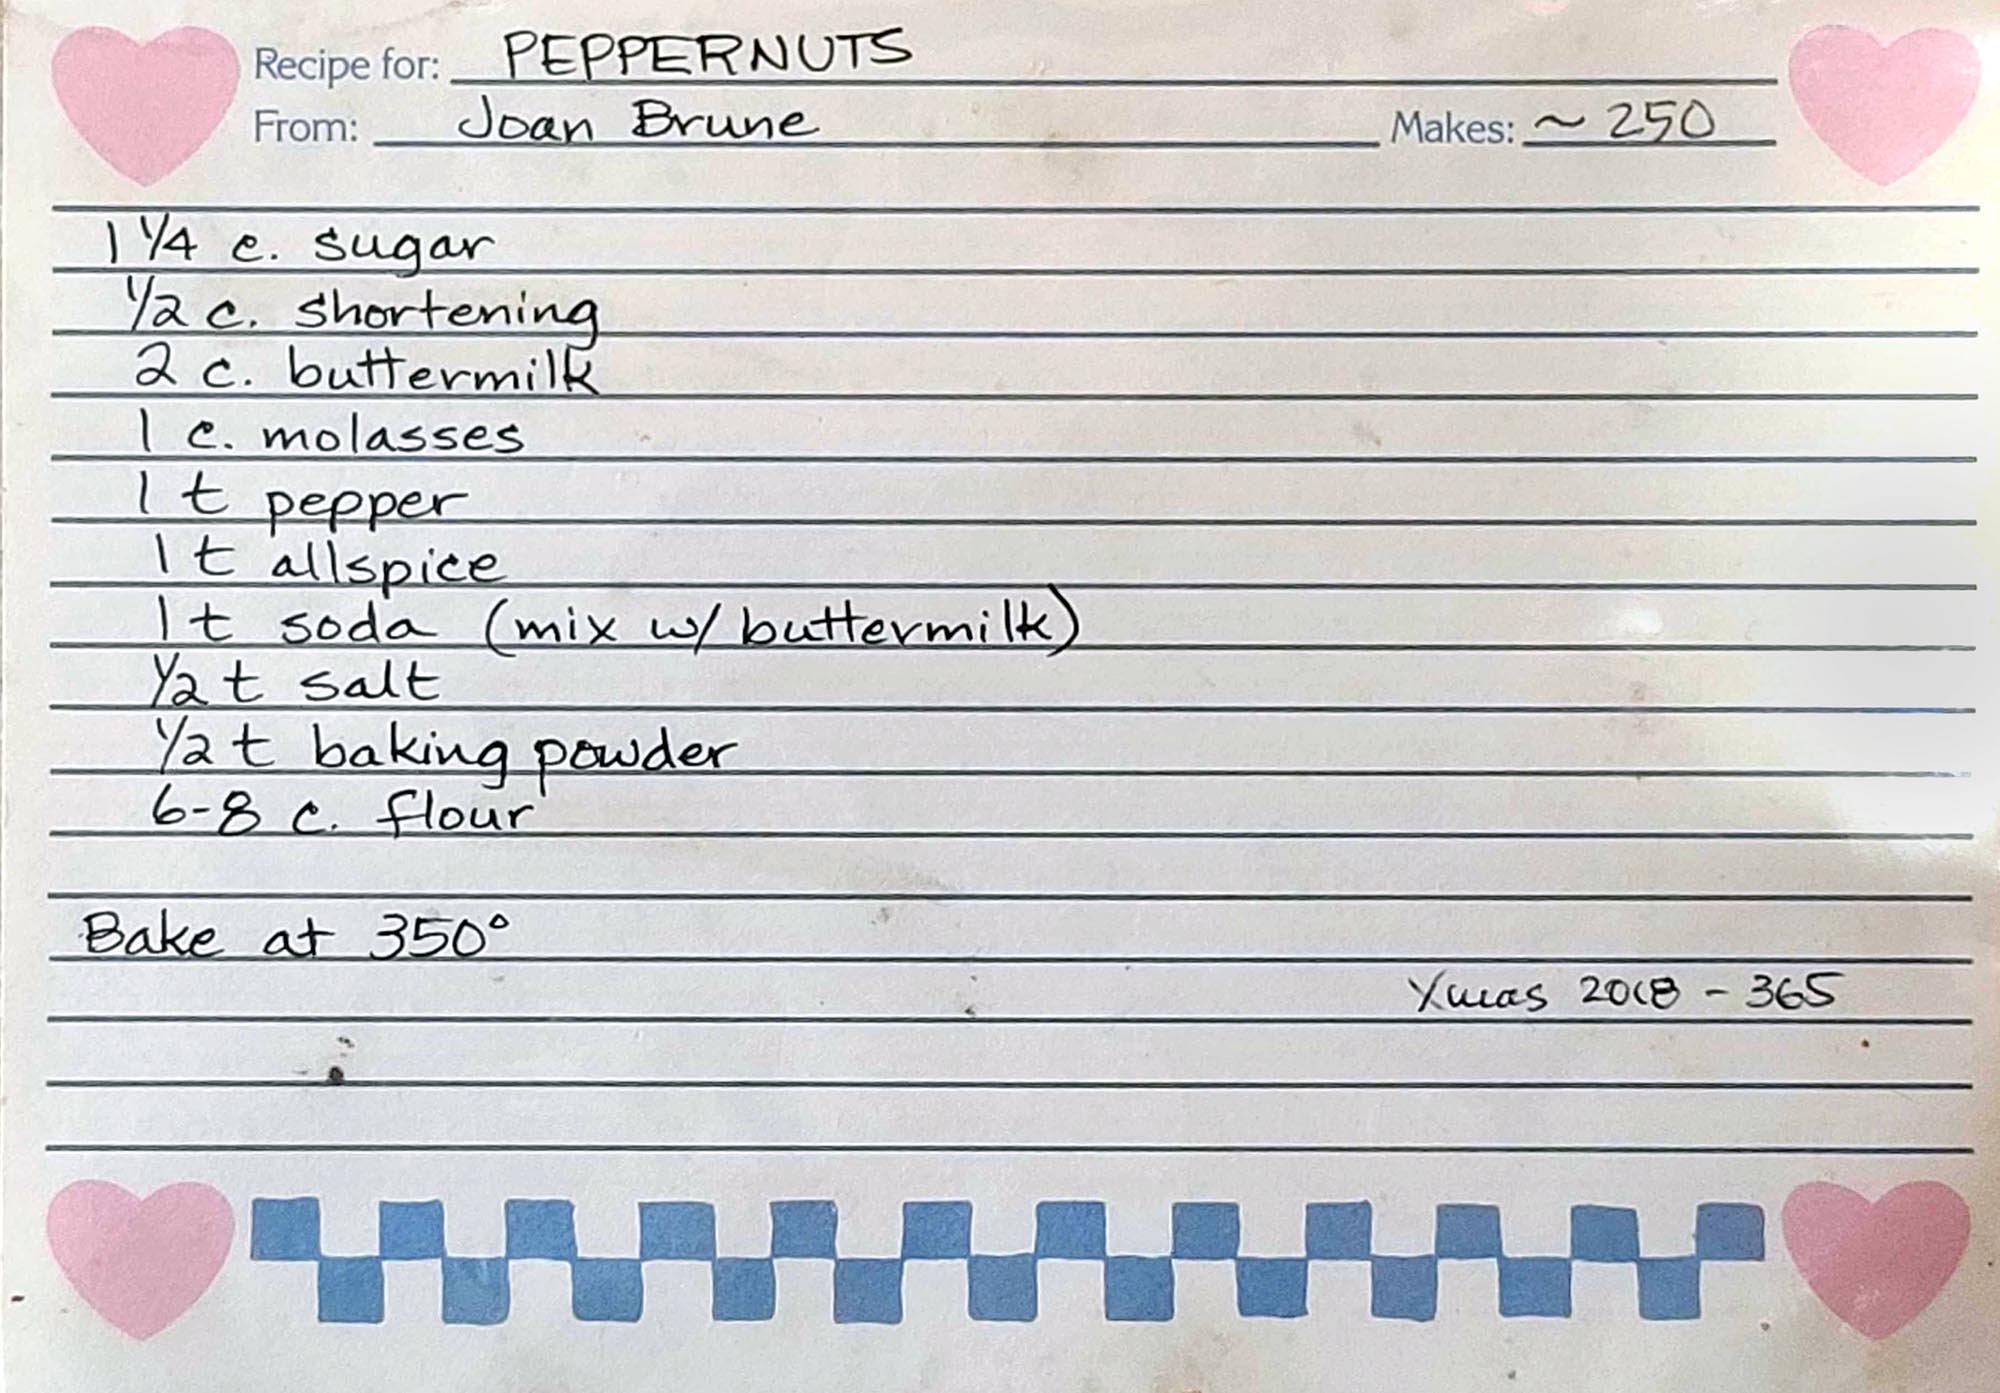 Recipe for: PEPPERNUTS
From: Joan Brune Makes: ~ 250
1 1/4 c. sugar
1/2 c. shortening
2 c. buttermilk
1 c. molasses
1 t pepper
1 t allspice
1 t soda (mix w/ buttermilk)
1/2 t salt
1/2 t baking powder
6-8 c. flour
Bake at 350°
Xmas 2018 - 365